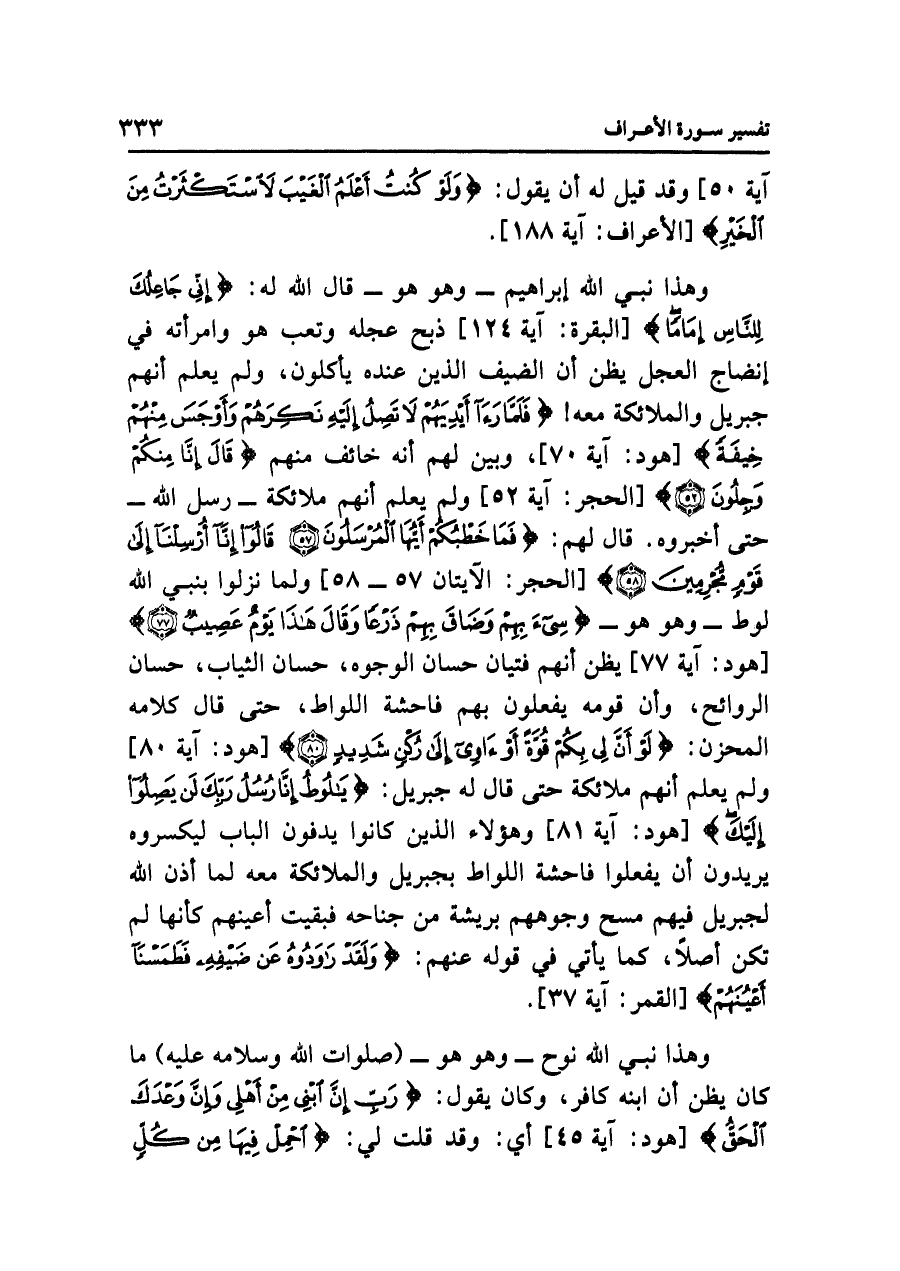 تفسير سورة الأعراف ٣٣٣
آية ٥٠] وقد قيل له أن يقول: ﴿وَلَوْ كُنتُ أَعْلَمُ ٱلْغَيْبَ لَٱسْتَكْثَرْتُ مِنَ
ٱلْخَيْرِ﴾ [الأعراف: آية ١٨٨].
وهذا نبي الله إبراهيم ــ وهو هو ــ قال الله له: ﴿إِنِّي جَاعِلُكَ
لِلنَّاسِ إِمَامًاۖ﴾ [البقرة: آية ١٢٤] ذبح عجله وتعب هو وامرأته في
إنضاج العجل يظن أن الضيف الذين عنده يأكلون، ولم يعلم أنهم
جبريل والملائكة معه! ﴿فَلَمَّا رَءَآ أَيْدِيَهُمْ لَا تَصِلُ إِلَيْهِ نَكِرَهُمْ وَأَوْجَسَ مِنْهُمْ
خِيفَةً﴾ [هود: آية ٧٠]، وبين لهم أنه خائف منهم ﴿قَالَ إِنَّا مِنكُمْ
وَجِلُونَ ٥٢﴾ [الحجر: آية ٥٢] ولم يعلم أنهم ملائكة ــ رسل الله ــ
حتى أخبروه. قال لهم: ﴿فَمَا خَطْبُكُمْ أَيُّهَا ٱلْمُرْسَلُونَ ٥٧ قَالُوٓا۟ إِنَّآ أُرْسِلْنَآ إِلَىٰ
قَوْمٍ مُّجْرِمِينَ ٥٨﴾ [الحجر: الآيتان ٥٧ ــ ٥٨] ولما نزلوا بنبي الله
لوط ــ وهو هو ــ ﴿سِيٓءَ بِهِمْ وَضَاقَ بِهِمْ ذَرْعًا وَقَالَ هَٰذَا يَوْمٌ عَصِيبٌ ٧٧﴾
[هود: آية ٧٧] يظن أنهم فتيان حسان الوجوه، حسان الثياب، حسان
الروائح، وأن قومه يفعلون بهم فاحشة اللواط، حتى قال كلامه
المحزن: ﴿لَوْ أَنَّ لِي بِكُمْ قُوَّةً أَوْ ءَاوِيٓ إِلَىٰ رُكْنٍ شَدِيدٍ ٨٠﴾ [هود: آية ٨٠]
ولم يعلم أنهم ملائكة حتى قال له جبريل: ﴿يَٰلُوطُ إِنَّا رُسُلُ رَبِّكَ لَن يَصِلُوٓا۟
إِلَيْكَۖ﴾ [هود: آية ٨١] وهؤلاء الذين كانوا يدفون الباب ليكسروه
يريدون أن يفعلوا فاحشة اللواط بجبريل والملائكة معه لما أذن الله
لجبريل فيهم مسح وجوههم بريشة من جناحه فبقيت أعينهم كأنها لم
تكن أصلاً، كما يأتي في قوله عنهم: ﴿وَلَقَدْ رَٰوَدُوهُ عَن ضَيْفِهِۦ فَطَمَسْنَآ
أَعْيُنَهُمْ﴾ [القمر: آية ٣٧].
وهذا نبي الله نوح ــ وهو هو ــ (صلوات الله وسلامه عليه) ما
كان يظن أن ابنه كافر، وكان يقول: ﴿رَبِّ إِنَّ ٱبْنِي مِنْ أَهْلِي وَإِنَّ وَعْدَكَ
ٱلْحَقُّ﴾ [هود: آية ٤٥] أي: وقد قلت لي: ﴿ٱحْمِلْ فِيهَا مِن كُلٍّ